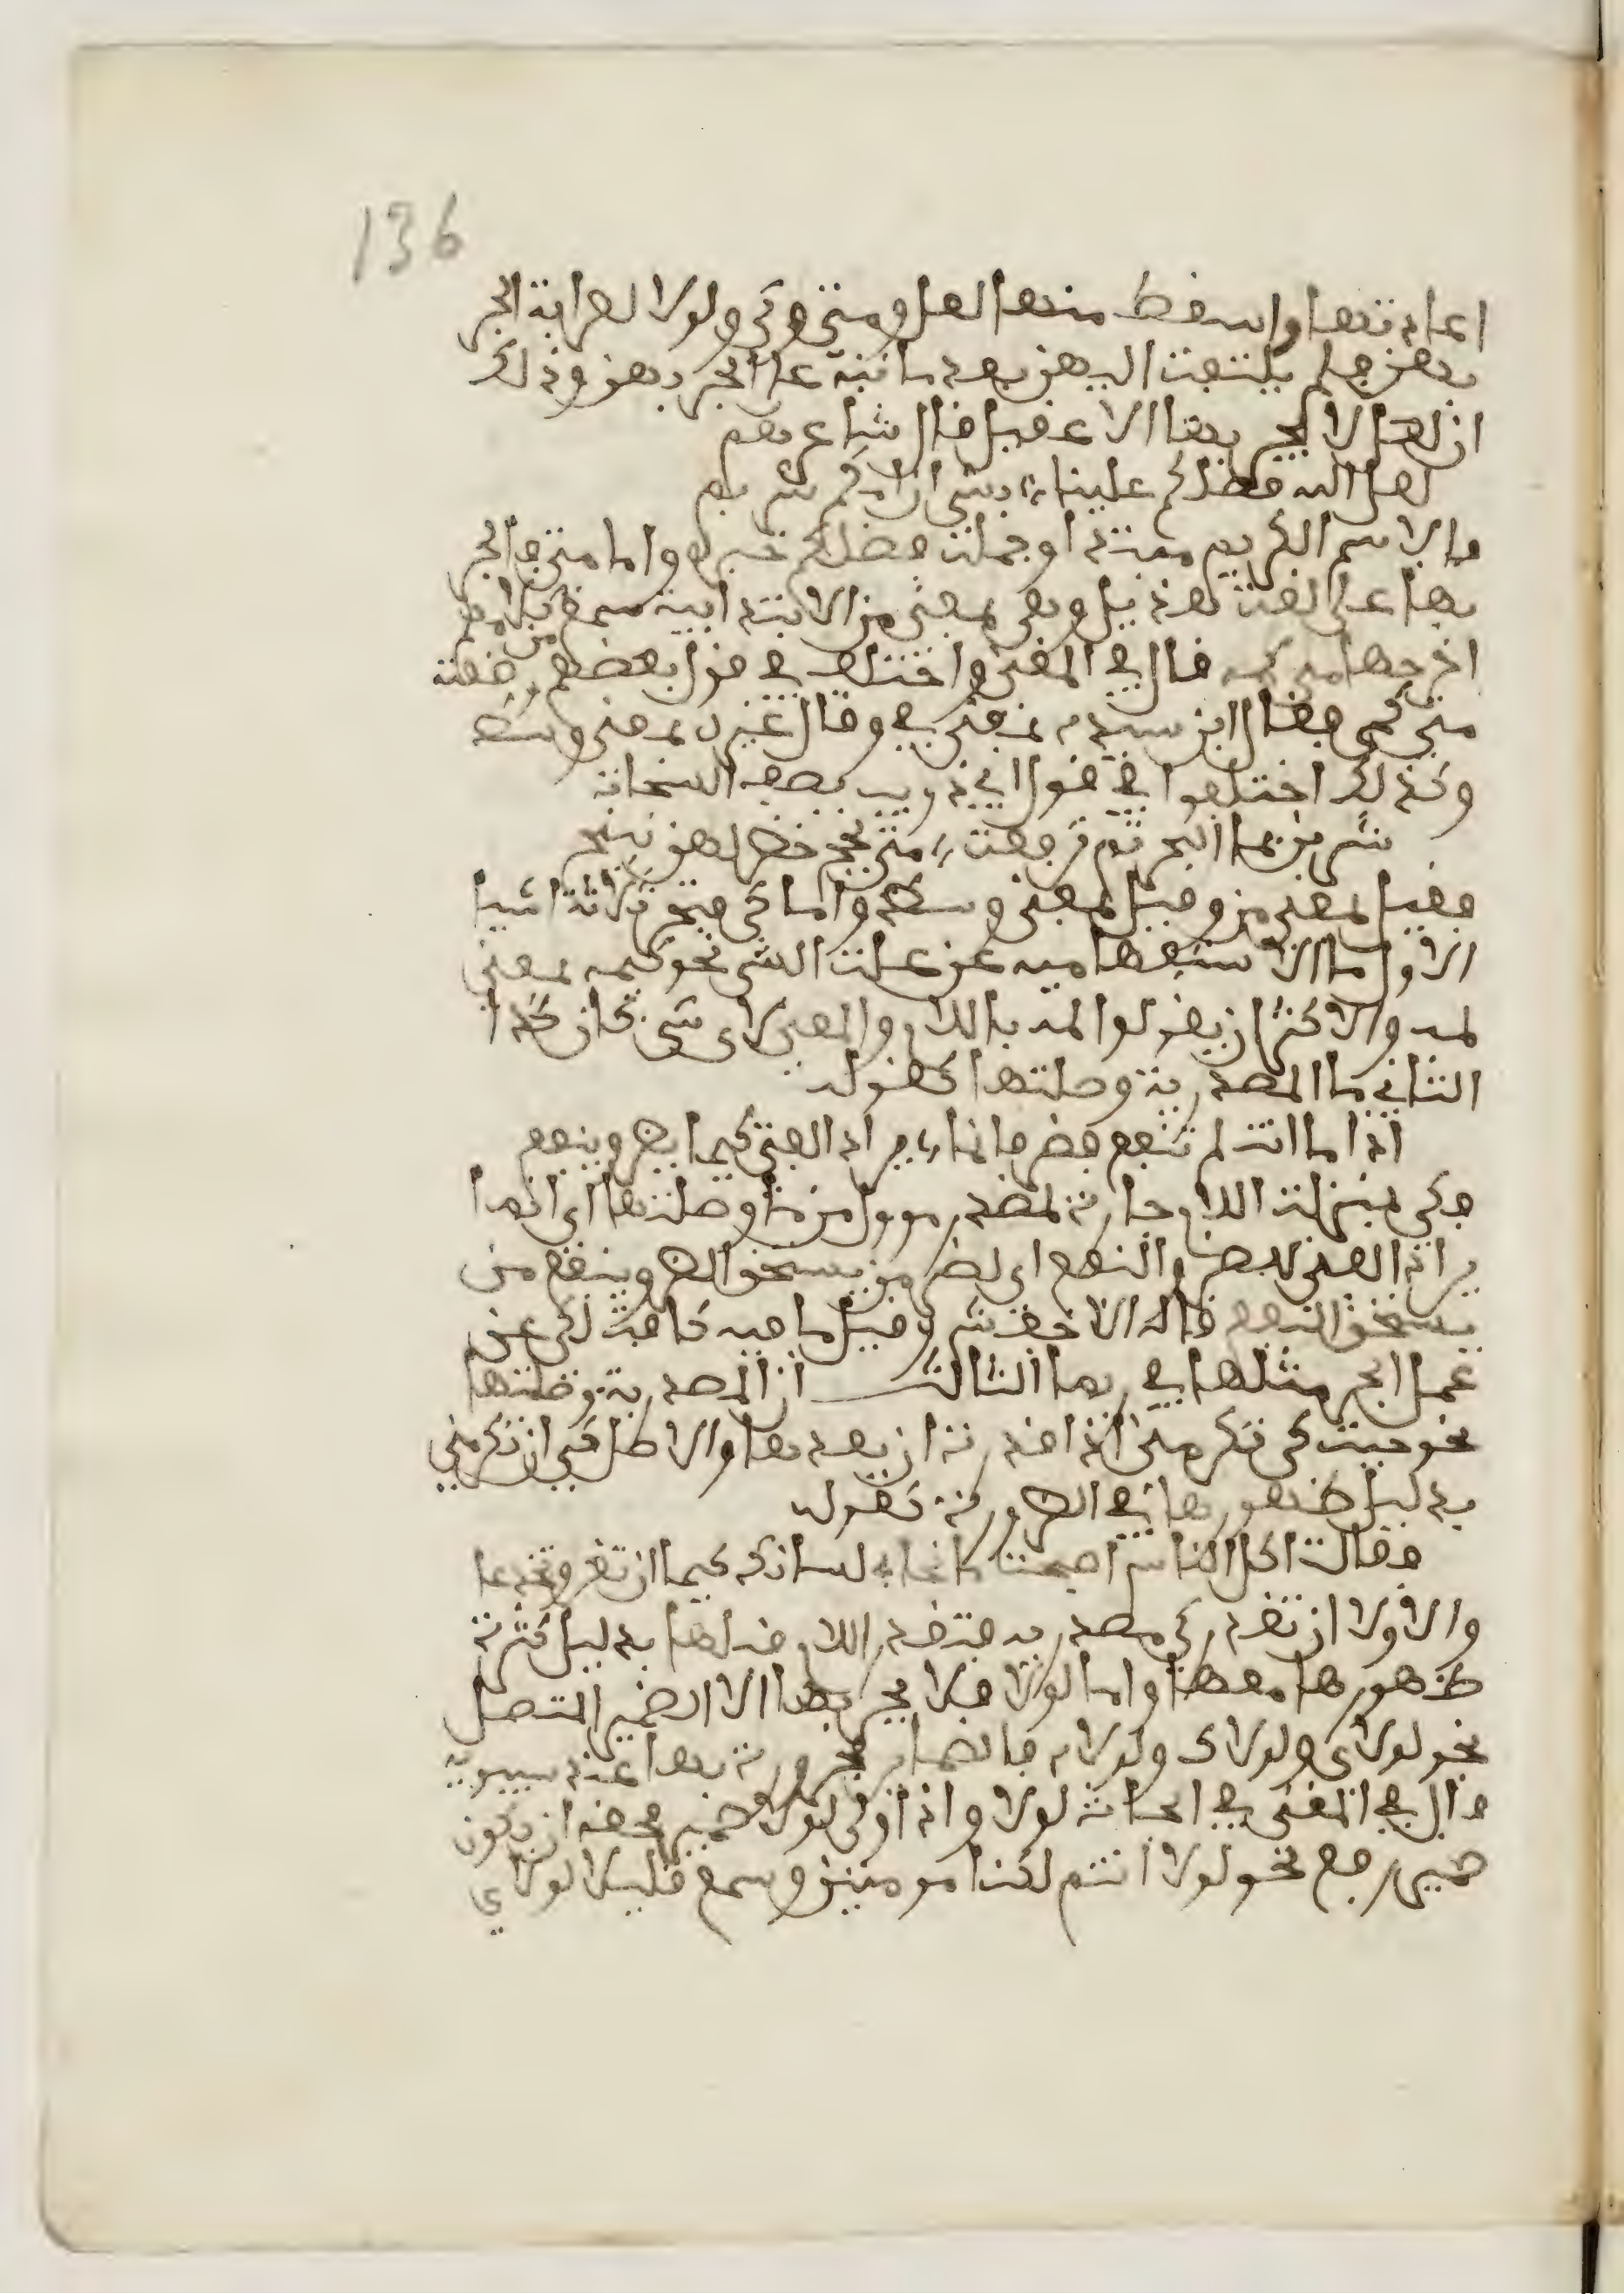 136
اعادتها واسقط منها لعل ومتى وكي ولولا لغرابة الجر
بهن فلم يلتفت اليهن بعد ما نبه على الجر بهن وذلك
ان لعل لا يجر بها الا عقيل قال شاعرهم
لعل الله فضلكم علينا بشيء ان امكم شريم
فالاسم الكريم مبتدا وجملة فضلكم خبره واما متى فالجر
بها على لغة هذيل وهي بمعنى من الابتدائية سمع كلامهم
اخرجها من كمه قال في المغنى واختلف في قول بعضهم وضعته
متى كمي فقال ابن سيده بمعنى في وقال غيره بمعنى وسط
وكذلك اختلفوا في قول ابي ذويب يصف السحاب
شربن بماء البحر ثم ترفعت متى لجج خضر لهن نئيج
فقيل بمعنى من وقيل بمعنى وسط واما كي فتجر ثلاثة اشيا
الاول ما الاستفهامية عن علة الشي نحو كيمه بمعنى
لمه والاكثر ان يقولوا لمه باللام والمعنى لاي شي كان كذا
الثاني ما المصدرية وصلتها كقوله
اذا انت لم تنفع فضر فانما يراد الفتى كيما يضر وينفع
فكي بمنزلة اللام جارة لمصدر موول من ما وصلتها اي انما
يراد الفتى للضر والنفع اي لضر من يستحق الضر وينفع من
يستحق النفع قاله الاخفش وقيل ما فيه كافة لكي عن
عمل الجر مثلها في ربما الثالث ان المصدرية وصلتها
نحو جيت كي تكرمني اذا قدرت ان بعدها والاصل كي ان تكرمني
بدليل ظهورها في الضرورة كقوله
فقالت اكل الناس اصبحت مانحا لسانك كيما ان تغر وتخدعا
والاولا ان تقدر كي مصدرية فتقدر اللام قبلها بدليل كثرة
ظهورها معها واما لولا فلا يجر بها الا الضمير المتصل
نحو لولاي ولولاك ولولاه فالضماير مجرورة بها عند سيبويه
قال في المغنى في ابحاث لولا واذا ولي لولا ضمير فحقه ان يكون
ضمير رفع نحو لولا انتم لكنا مومنين وسمع قليلا لولاي